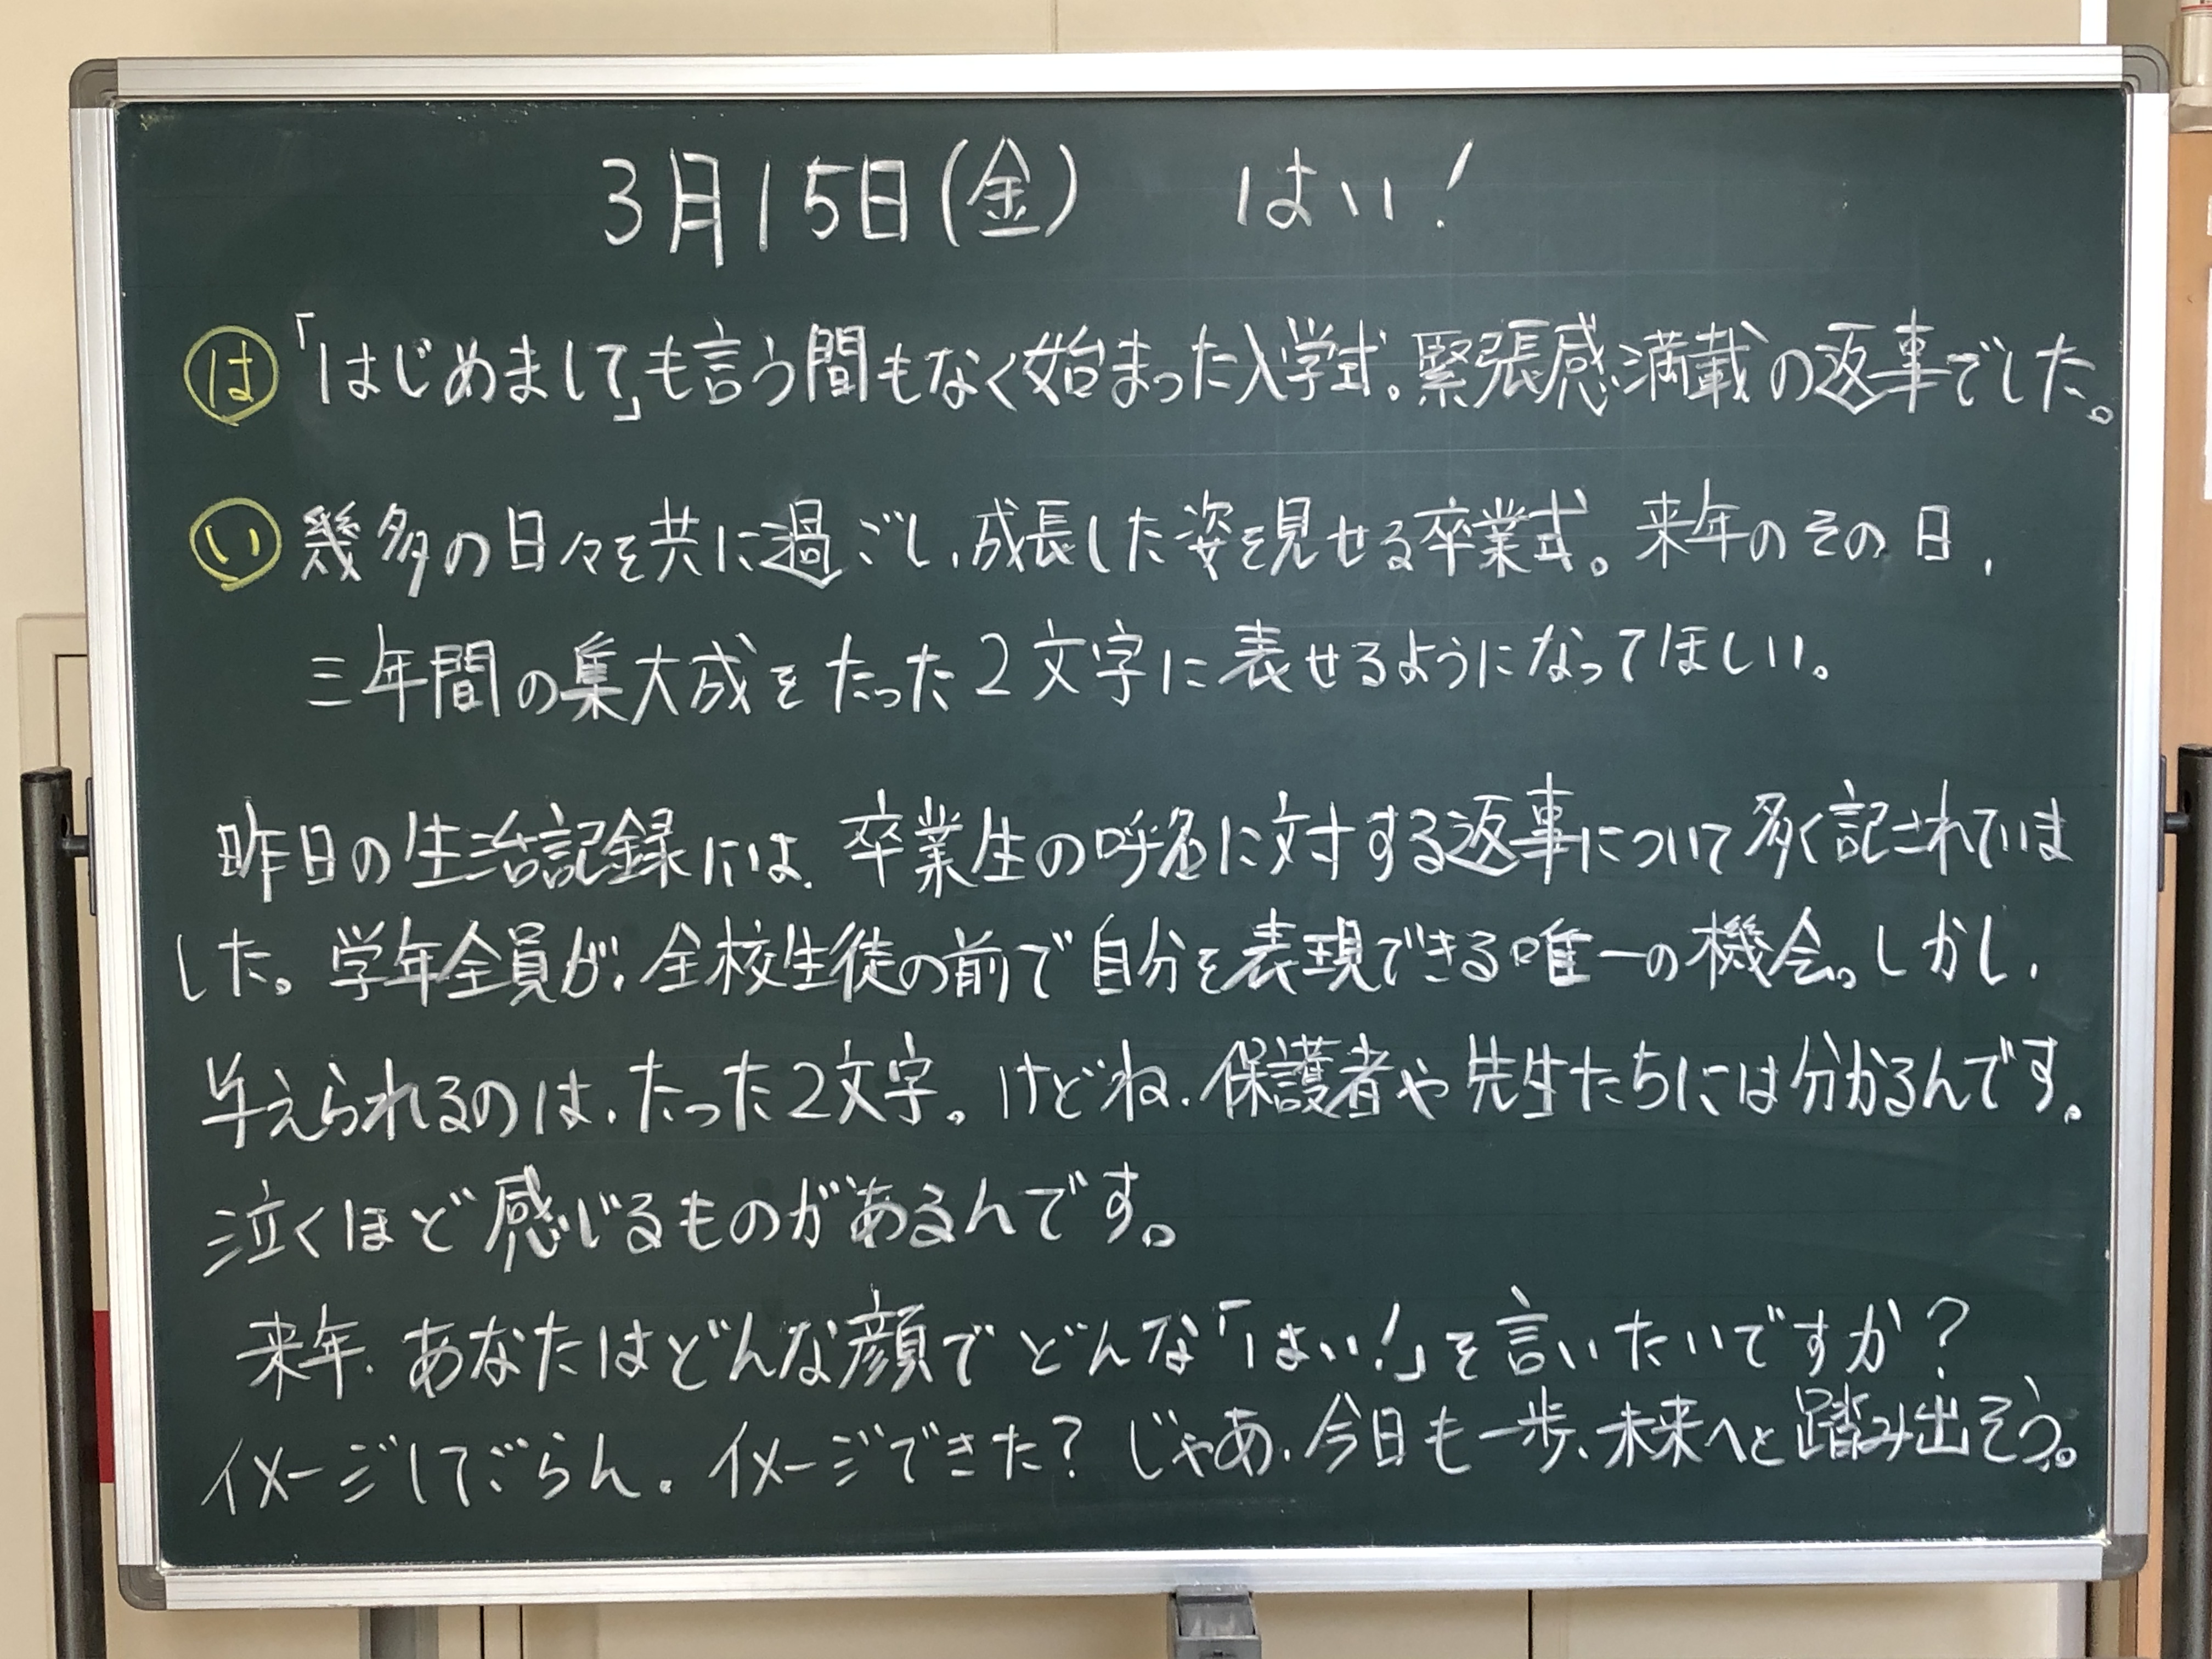 3月15日(金)　はい!
は 「はじめまして」も言う間もなく始まった入学式。緊張感満載の返事でした。
い 幾多の日々を共に過ごし、成長した姿を見せる卒業式。来年のその日、
三年間の集大成をたった2文字に表せるようになってほしい。
昨日の生活記録には、卒業生の呼名に対する返事について多く記されていま
した。学年全員が、全校生徒の前で自分を表現できる唯一の機会。しかし、
与えられるのは、たった2文字。けどね、保護者や先生たちには分かるんです。
泣くほど感じるものがあるんです。
来年、あなたはどんな顔でどんな「はい!」を言いたいですか?
イメージしてごらん。イメージできた?じゃあ、今日も一歩、未来へと踏み出そう。